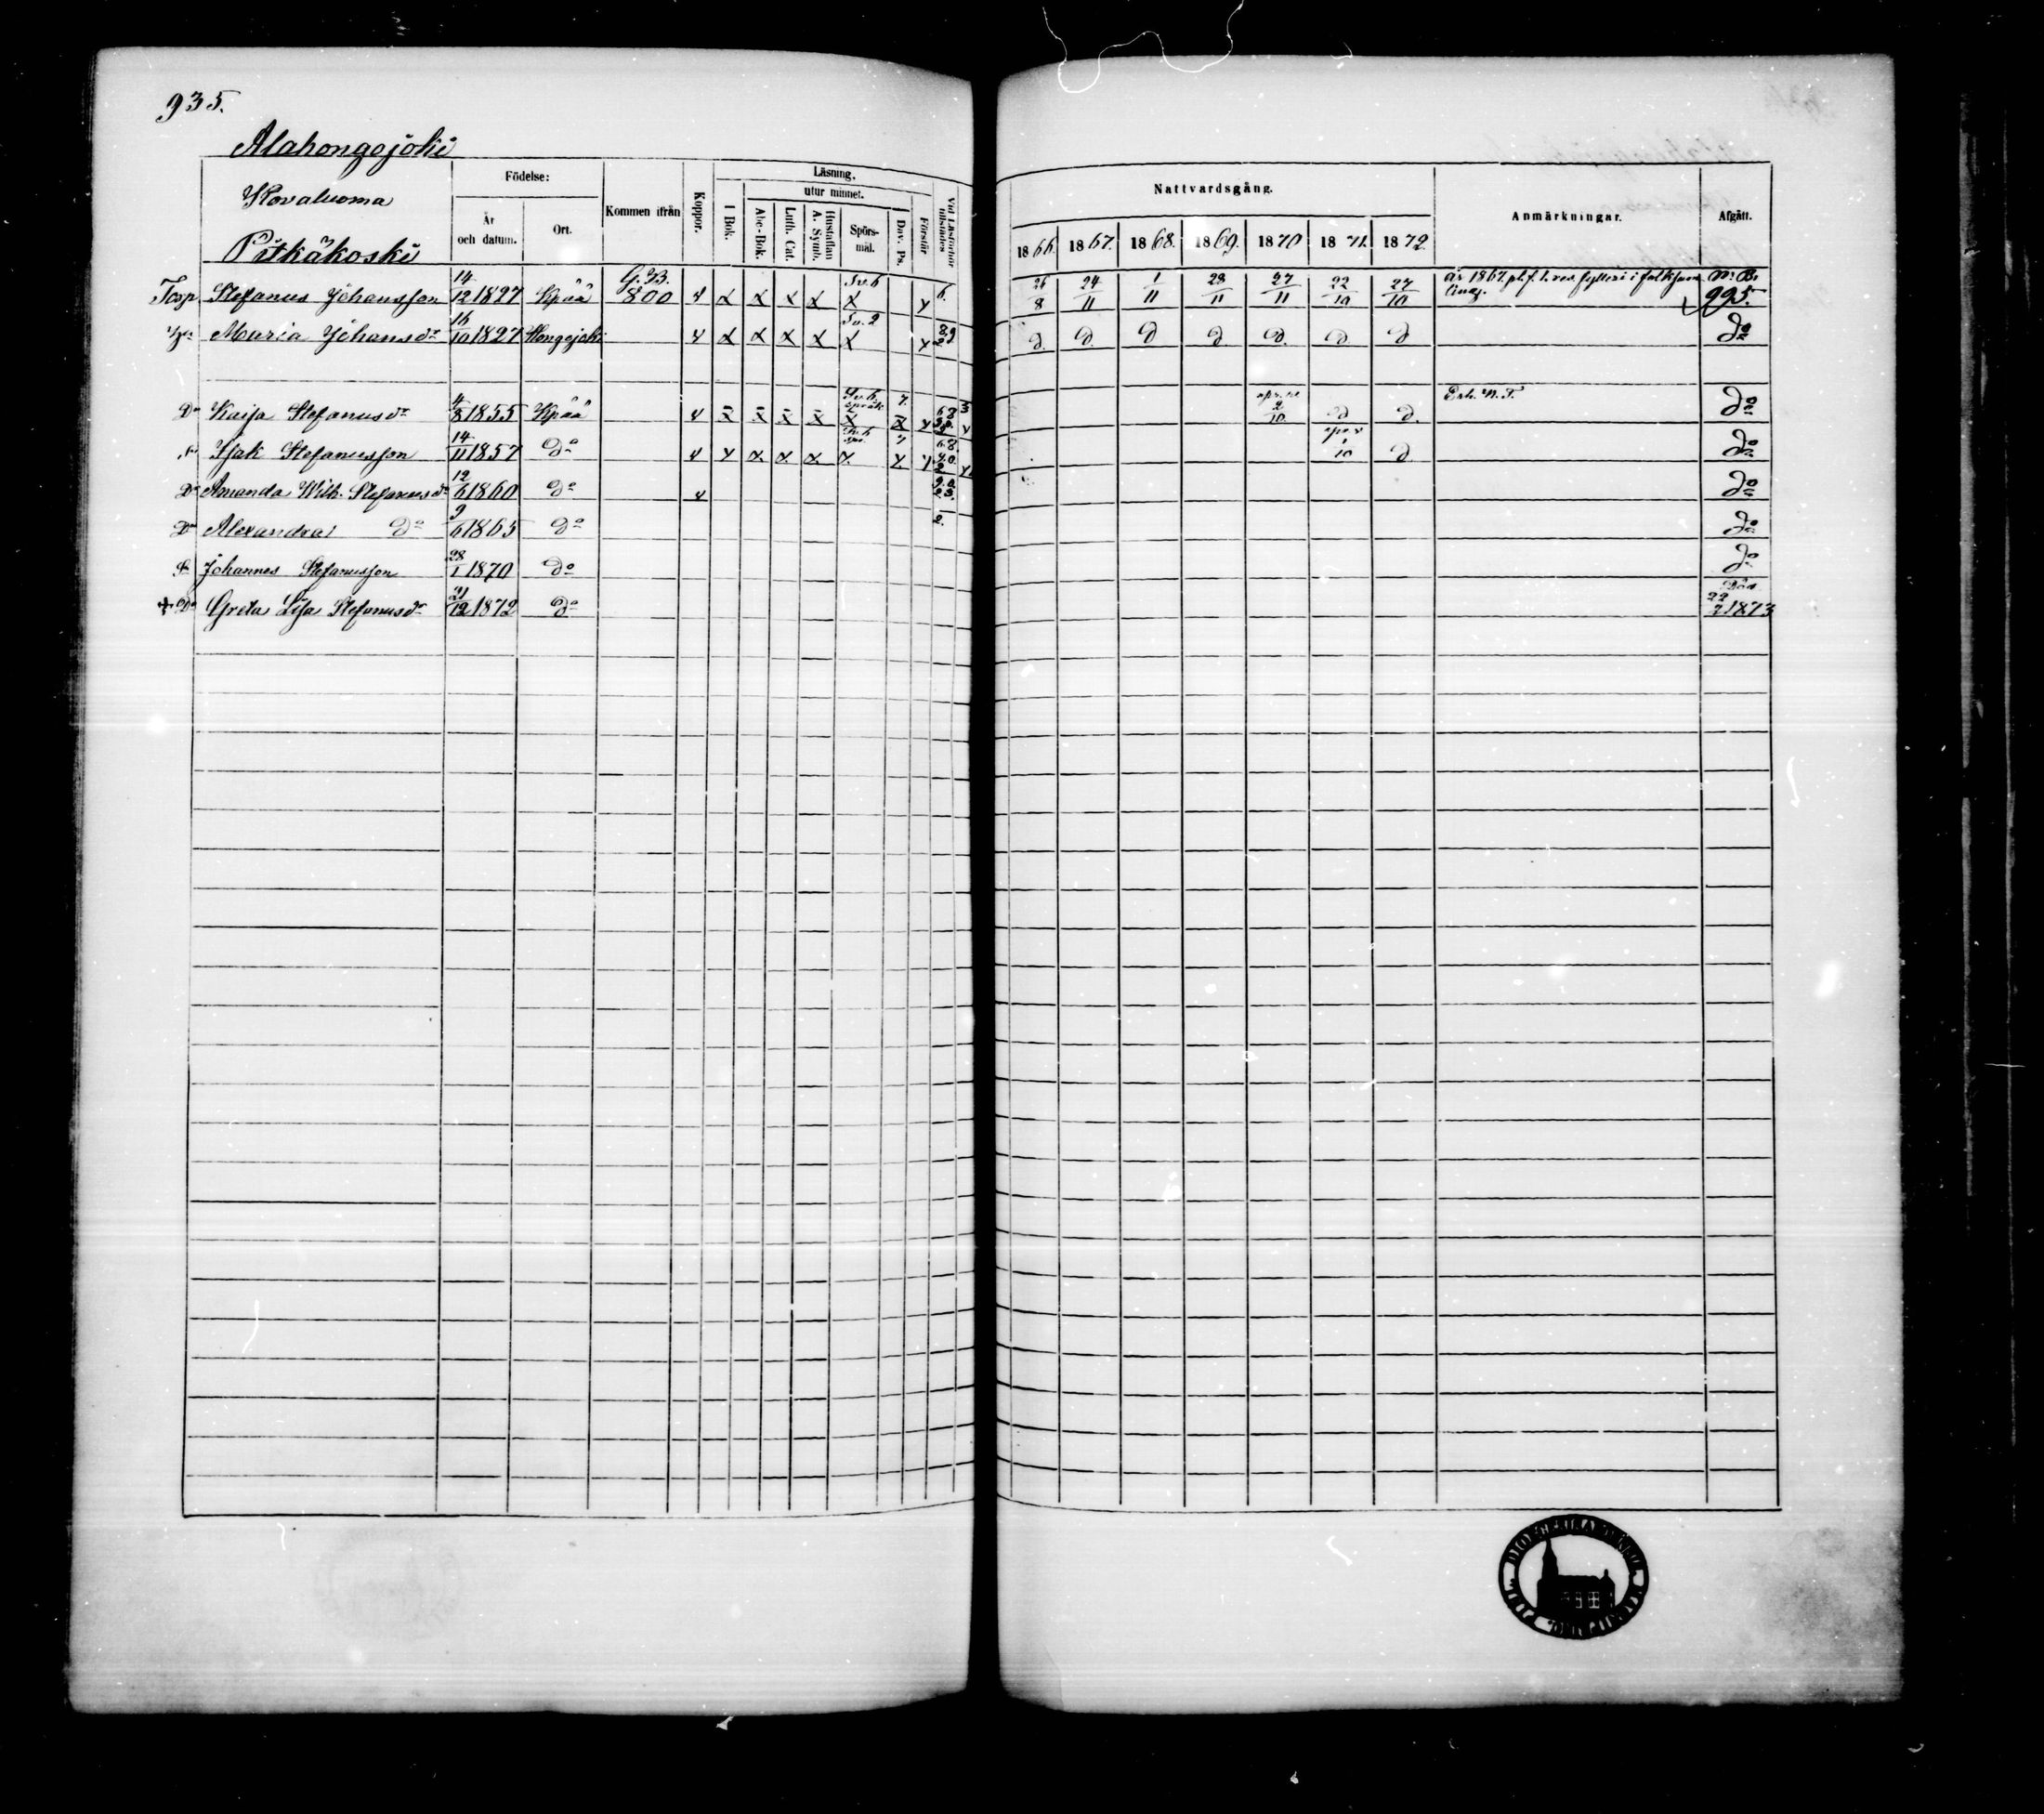 935.
Alahongojoki
Kovaluoma
Pitkäkoski
Födelse:
År och datum.
Ort.
Kommen ifrån
Koppor.
Läsning.
I Bok.
utur minnet.
Abc-Bok.
Luth. Cat.
Hustaflan A. Symb.
Spörs-mål.
Dav. Ps.
Förstår
Vid Läsförhör tillstädes
Nattvardsgång.
1866. 1867. 1868. 1869. 1870 1871. 1872.
Anmärkningar.
Afgått.
Torp. Stefanus Johansson 14/12 1827 Kpää G.B. 800 4 x x x x Sv. 6 x x 6. 26/8 24/11 1/11 28/11 27/11 22/10 27/10 år 1867 pl. f. 1. res fylleri i N. B. 995.
Maria Johansdr 16/10 1827 Hongojoki 4 x x x x Sv. 2 x x d. d. d d d. d d do
Dr Kaija Stefanusdr 4/8 1855 Kpää 4 x x x x x x x 2/10 d d. Erh. N. T. do
Isak Stefanusson 14/11 1857 do 4 x x x x x x x 1/10 d do
Dr Amanda Wilh. Stefanusdr 12/6 1860 do 4 do
Dr Alexandra do 9/6 1865 do 2. do
S. Johannes Stefanusson 28/1 1870 do do
+ Dr Greta Lisa Stefanusdr 21/12 1872 do Död 22/2 1873